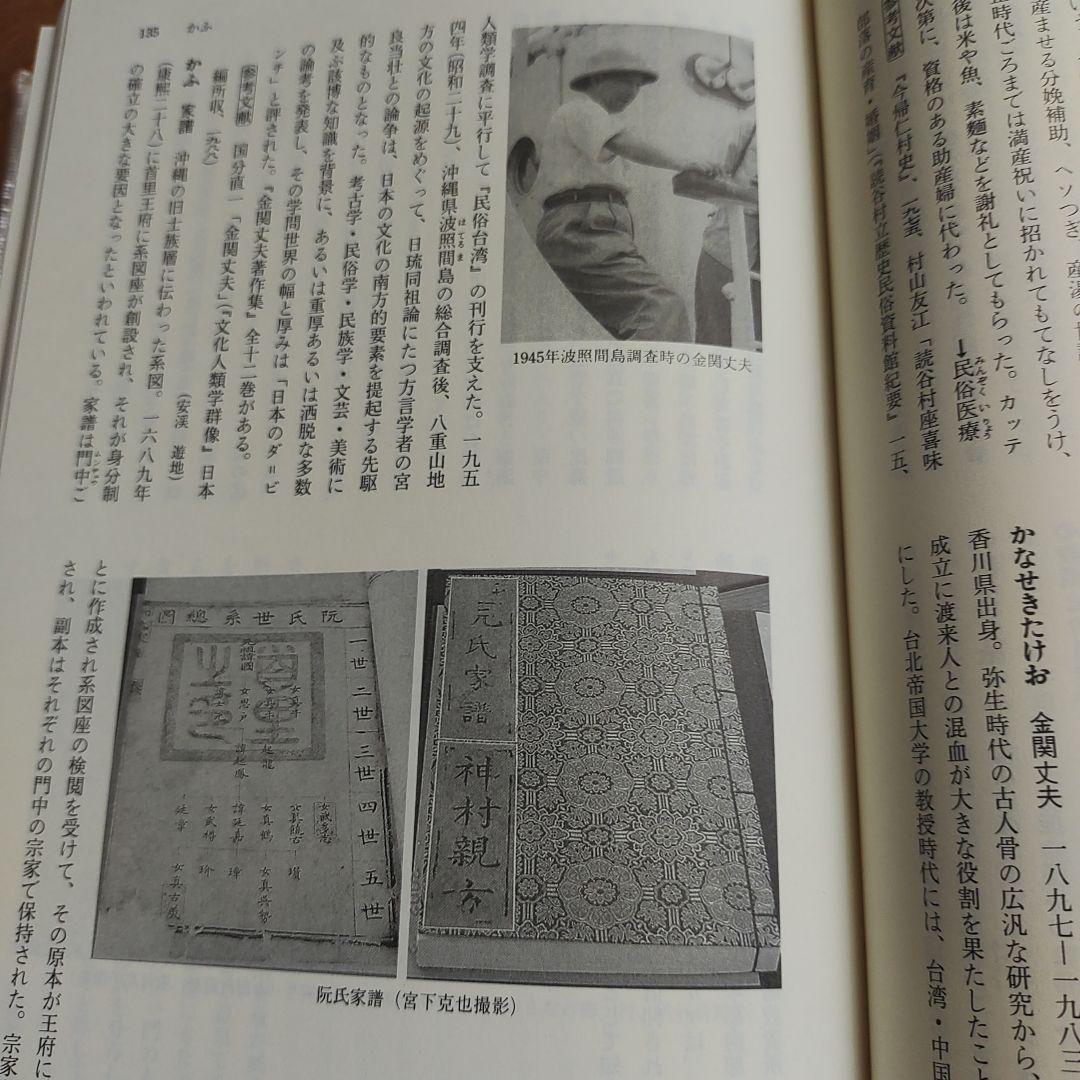 産ませる分娩補助、ヘソつぎ、産湯の
正時代ころまでは満産祝いに招かれてもてなしをうけ、
後は米や魚、素麺などを謝礼としてもらった。カッテ
次第に、資格のある助産婦に代わった。→民俗医療
みんぞくいりょう
参考文献 『今帰仁村史』、一九七五、村山友江「読谷村座喜味
部落の産育・婚姻」(『読谷村立歴史民俗資料館紀要』一五、
かなせきたけお 金関丈夫 一八九七―一九八三
香川県出身。弥生時代の古人骨の広汎な研究から、
成立に渡来人との混血が大きな役割を果たしたこと
にした。台北帝国大学の教授時代には、台湾・中国
135 かふ
1945年波照間島調査時の金関丈夫
人類学調査に平行して『民俗台湾』の刊行を支えた。一九五
四年(昭和二十九)、沖縄県波照間島の総合調査後、八重山地
はてるま
方の文化の起源をめぐって、日琉同祖論にたつ方言学者の宮
良当壮との論争は、日本の文化の南方的要素を提起する先駆
的なものとなった。考古学・民俗学・民族学・文芸・美術に
及ぶ該博な知識を背景に、あるいは重厚あるいは洒脱な多数
の論考を発表し、その学問世界の幅と厚みは「日本のダ゠ビ
ンチ」と評された。『金関丈夫著作集』全十二巻がある。
参考文献 国分直一「金関丈夫」(『文化人類学群像』日本
編所収、一九八八)
(安渓 遊地)
かふ 家譜 沖縄の旧士族層に伝わった系図。一六八九年
(康熙二十八)に首里王府に系図座が創設され、それが身分制
の確立の大きな要因となったといわれている。家譜は門中ご
ムンチュウ
とに作成され系図座の検閲を受けて、その原本が王府に
され、副本はそれぞれの門中の宗家で保持された。宗家
阮氏世系總圖
一世
二世
三世
四世
五世
阮氏家譜
神村親方
阮氏家譜(宮下克也撮影)